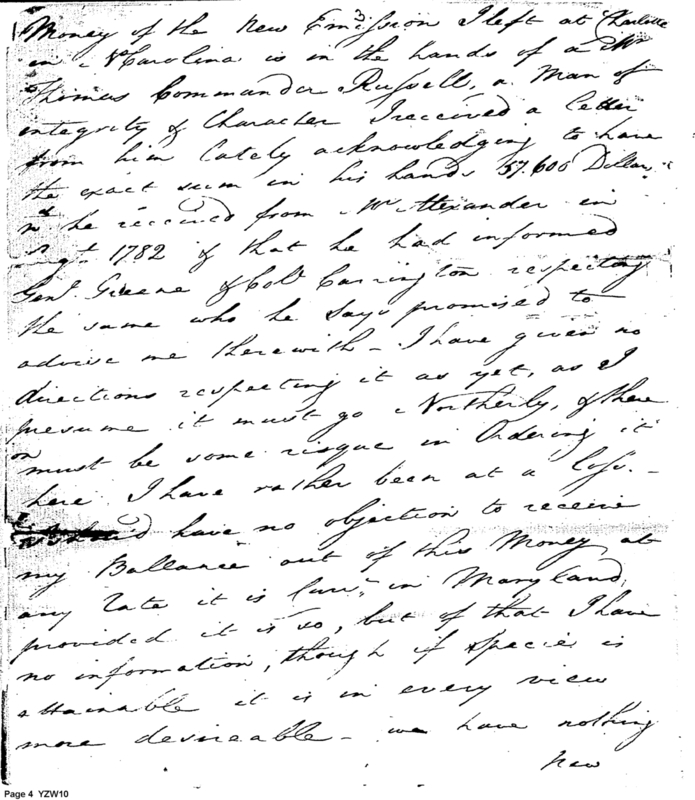 Money of the New Emission I left at Charlotte
in N Carolina is in the hands of a Mr
Thomas Commander Russell, a Man of
integrity & Character I received a letter
from him lately acknowledging to have
the exact sum in his hands 57.600 Dollars
he received from Mr Alexander in
1782 & that he had informed
Genl. Greene & Colo. Carrington respecting
the same who he says promised to
advise me therewith - I have given no
directions respecting it as yet, as I
presume it must go Northerly, & there
must be some risque in Ordering it
on
here I have rather been at a loss. -
have no objection to receive
my Ballance out of this Money, at
any rate it is Curt. in Maryland,
provided it is so, but of that I have
no information, though if Specie is
attainable it is in every view
more desireable - we have nothing
new
Page 4 YZW10